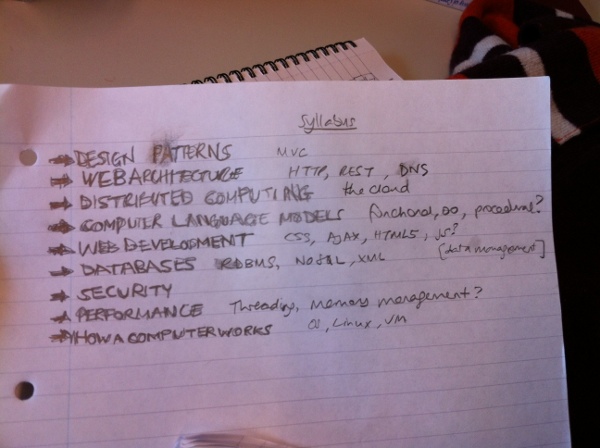 Syllabus
→ DESIGN PATTERNS MVC
→ WEB ARCHITECTURE HTTP, REST, DNS
→ DISTRIBUTED COMPUTING the cloud
→ COMPUTER LANGUAGE MODELS functional, OO, procedural?
→ WEB DEVELOPMENT CSS, AJAX, HTML5, JS?
→ DATABASES RDBMS, NoSQL, XML [data management]
→ SECURITY
→ PERFORMANCE Threading, memory management?
→ HOW A COMPUTER WORKS OS, Linux, VM